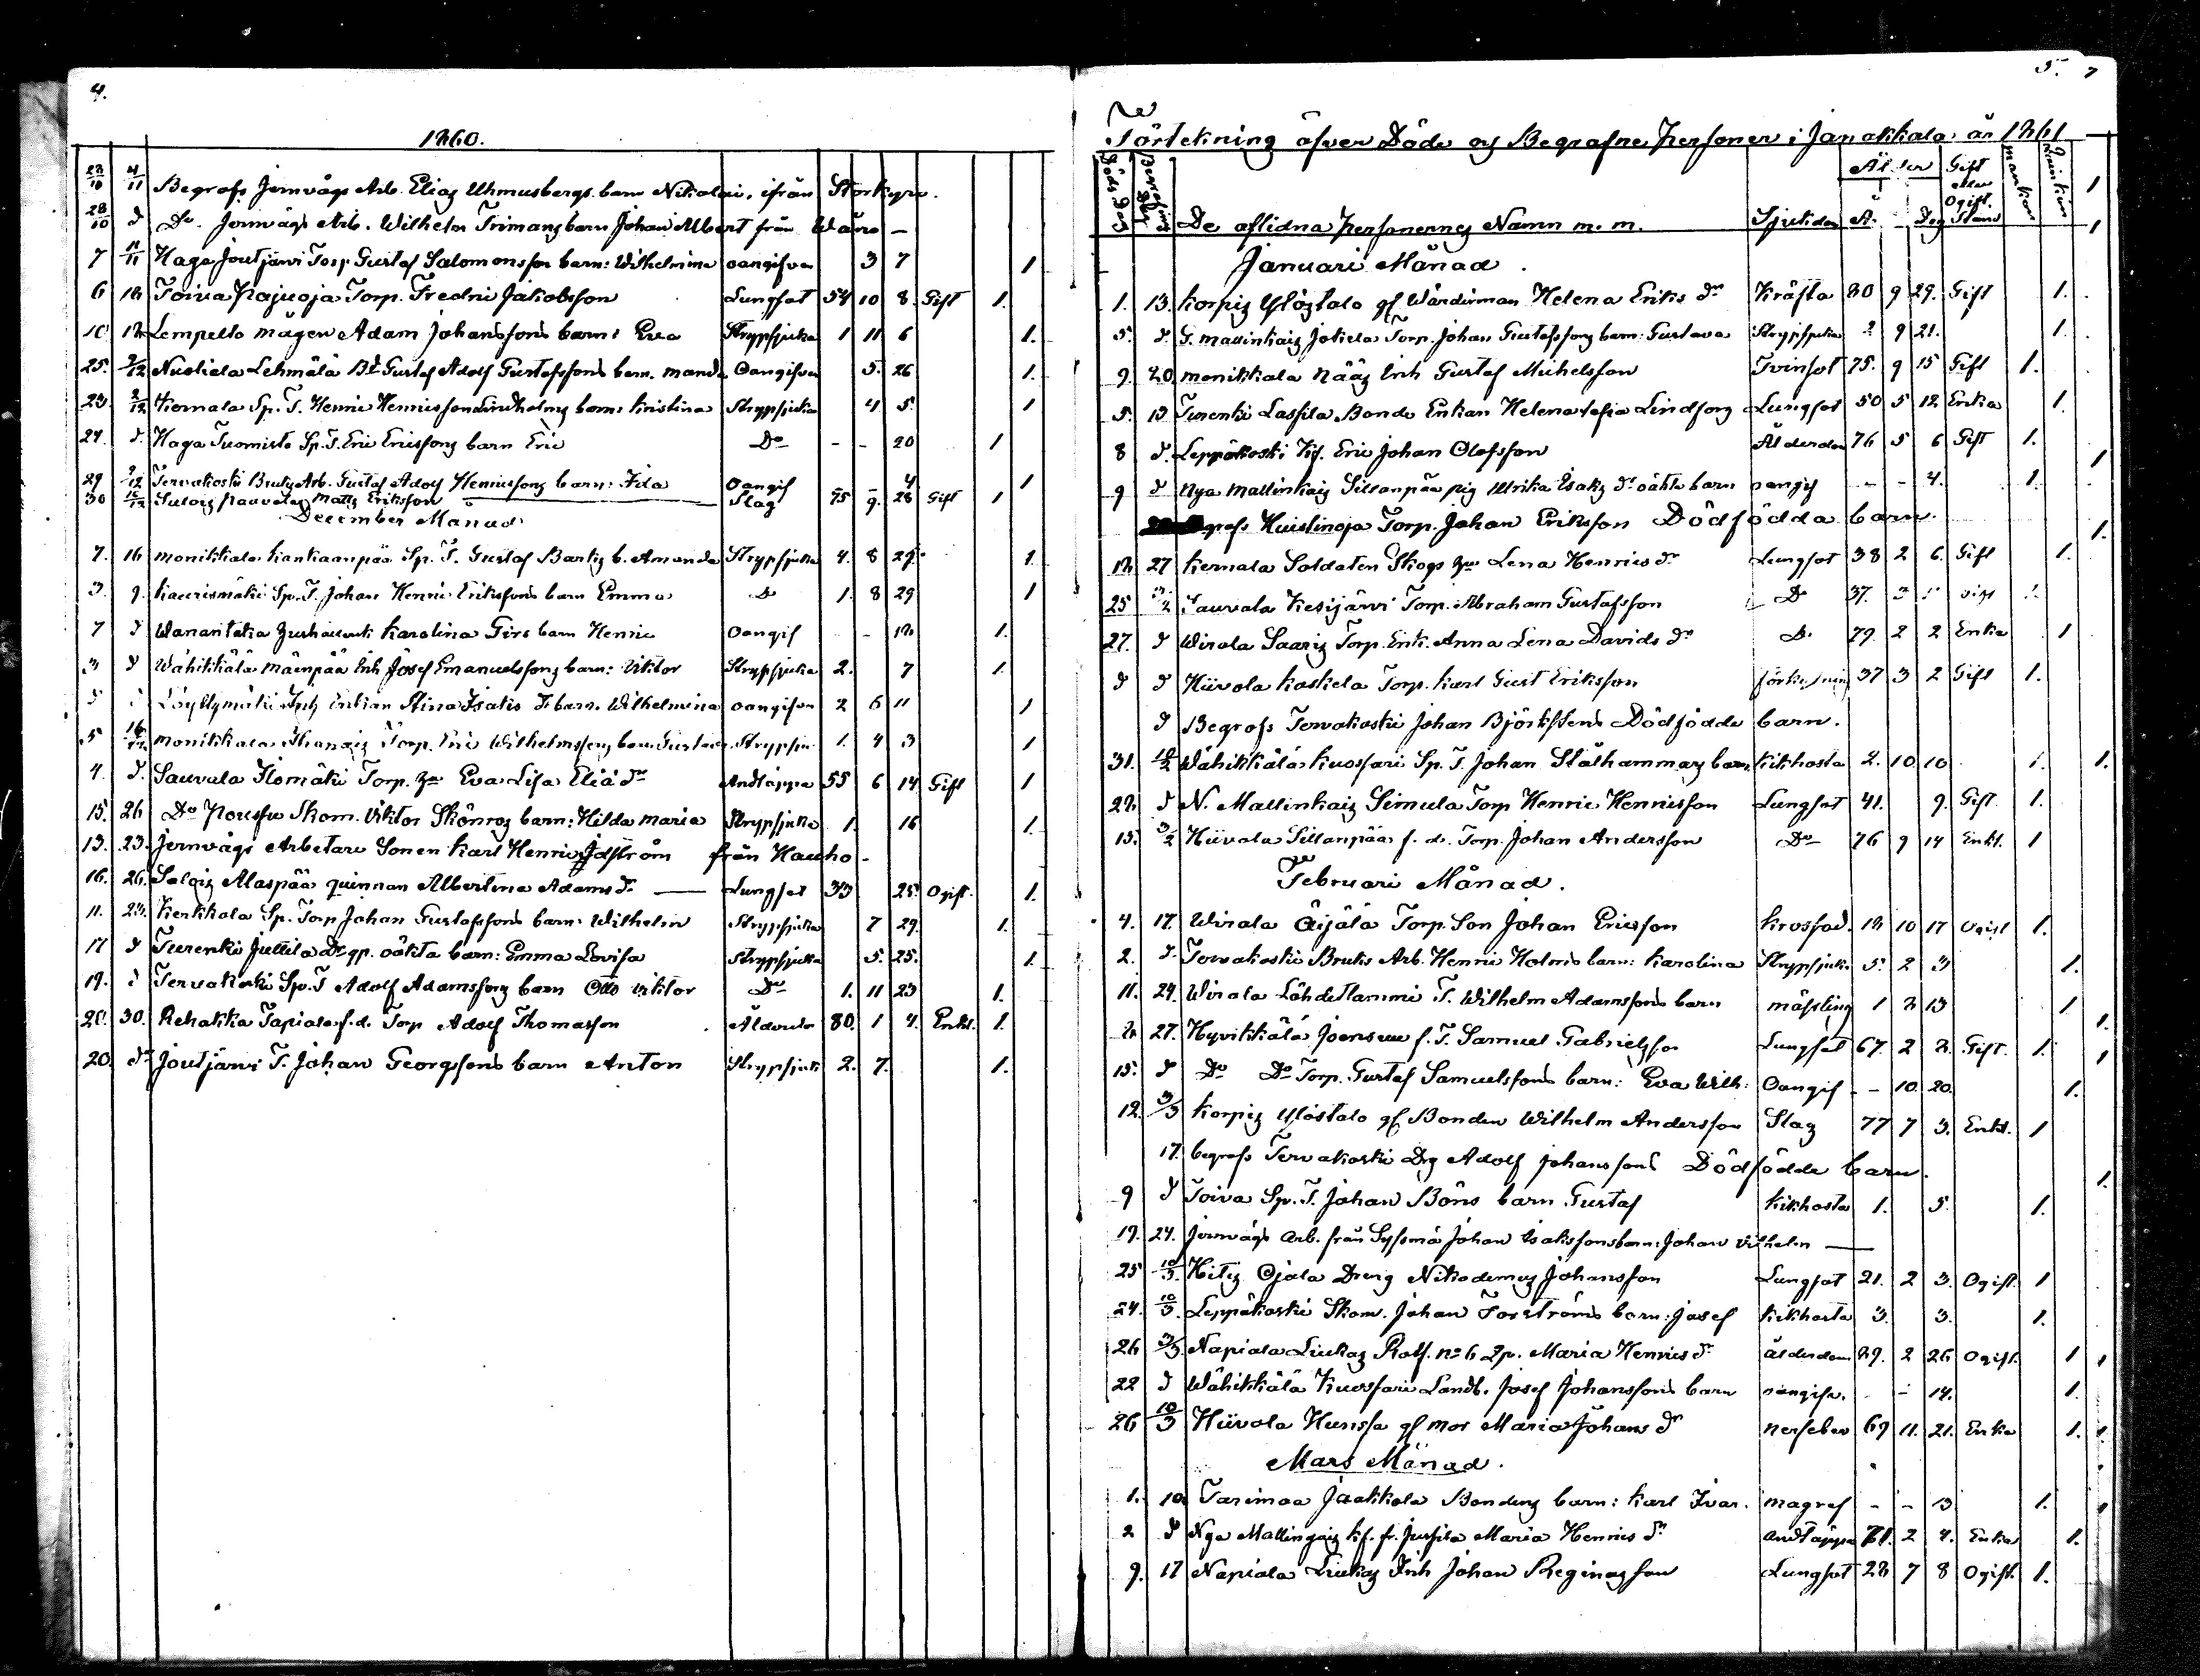 4.
1860.
23/10 4/11 Begrofs Jernvägs Arb. Elias Uhmusbergs barn Nikolai, ifrån Storkyro.
28/10 d Do. Jernvägs Arb. Wilhelm Trimans barn Johan Albert från
7 11/11 Haga Joutjärvi Torp. Gustaf Salomonsson barn: Wilhelmina oangifven 3 7 1
6 18 Toiva Pajuoja Torp. Fredric Jakobsson Lungsot 54 10 8 Gift 1.
10 18 Lempello mågen Adam Johanssons barn: Eva Strypsjuka 1 11 6 1.
25. 2/12 Lehmälä Bd Gustaf Adolf Gustafssons barn. Manda Oangifven 5. 26 1.
23. 2/12 Kernala Sp. T. Henric Henricsson Lindholms barn: Kristina Strypsjuka 4 5. 1
24. d. Haga Tuomisto Sp. T. Eric Ericssons barn Eric Do - - 20 1
29 9/12 Tervakoski Bruks Arb. Gustaf Adolf Henricssons barn: Ida Oangif - - 4 1
30 Matts Eriksson Slag 75 9. 28 Gift 1
December Månad
7. 16 Monikkala Kankaanpää Sp. T. Gustaf Bartks b. Amanda Strypsjuka 4. 8 29. 1
3. 9. Kaurismäki Sp. T. Johan Henric Erikssons barn Emma Do 1. 8 29 1
7 d Wanantaka Karolina Girs barn Henric Oangif - 18 1.
3 d Wähikkälä Mäenpää Inh Josef Emanuelssons barn: Viktor Strypsjuka 2. 7 1.
5 Löyttymäki Inh Enkan Stina Isaks dr barn. Wilhelmina oangifven 2 6 11 1
5 16/12 Monikkala Torp. Eric Wilhelmssons barn Strypsju. 1. 4 3 1
4. d. Sauvala Ilomäki Torp. Eva Lisa Eliæ dr Andtäppa 55 6 14 Gift 1
15. 26 Do Skom. Viktor Skönros barn: Hilda Maria Strypsjuka 1. 16 1.
13. 23. Jernvägs Arbetare Sonen Karl Henric Idström från Hauho -
16. 26. Salois Alaspää quinnan Albertina Adams dr — Lungsot 33 25. Ogift. 1.
11. 23. Kerkkola Sp. Torp Johan Gustafssons barn: Wilhelm Strypsjuka 7 29. 1.
17 d Turenki Juttila Dr gp. oäkta barn: Emma Lovisa Strypsjuka 5. 25. 1.
19. d Tervakoski Sp. T Adolf Adamssons barn Otto Viktor Do 1. 11 23 1.
20. 30. Rehakka Tapiala f.d. Torp Adolf Thomasson Ålderdom 80. 1 4. Enkl. 1.
20. d Joutjärvi T. Johan Georgssons barn Anton Strypsjuka 2. 7. 1.
5. 7
Förtekning öfver Döde og Begrafne Personer i Janakkala år 1861
Döds Dag Begrafnings Dag De aflidna Personernes Namn m. m. Sjukdom Ålder År Dag Gift eller Ogift Stånd mankön Qvinkön
Januari Månad.
1. 13. Korpis Ylöstalo gl Wärdinnan Helena Eriks dr Kräfta 80 9 29. Gift 1.
5. d. G. Mallinkais Jokela Torp. Johan Gustafssons barn: Gustava Strypsjuka 2 9 21. 1.
9. 20 Monikkala Nääs Inh Gustaf Michelsson Tvinsot 75. 9 15 Gift 1.
5. 13 Turenki Lassila Bonde Enkan Helena Sofia Lindfors Lungsot 50 5 18 Enka 1.
8 d. Leppäkoski Kf. Eric Johan Olofsson Ålderdom 76 5 6 Gift 1.
9 d Nya Mallinkais Sillanpää pig Ulrika Isaks dr oäkta barn oangif - - 4. 1.
Begrofs Huistinoja Torp. Johan Eriksson Dödfödda barn.
18 27 Kernala Soldaten Skogs hu Lena Henrics dr Lungsot 38 2 6. Gift 1.
25 3/2 Sauvala Kesijärvi Torp. Abraham Gustafsson Do 37. 3
27. d Wirala Saaris Torp. Enk. Anna Lena Davids dr Do 79. 2 2 Enka 1
d d Hiivola Koskela Torp. Karl Gust Eriksson 37 3 2 Gift 1.
d Begrofs Tervakoski Johan Björkstens Dödfödde barn.
31. 10/2 Wähikkälä Kuossari Sp. T. Johan Stålhammars barn. Kikhosta 2. 10 10 1.
28. d N. Mallinkais Simula Torp Henric Henricsson Lungsot 41. 9. Gift. 1.
15. 3/2 Hiivola Sillanpää f. d. Torp. Johan Andersson Do 76 9 14 Enkl. 1
Februari Månad.
4. 17. Wirala Äijälä Torp. Son Johan Ericsson 18 10 17 Ogift 1.
2. d. Tervakoski Bruks Arb. Henric Holms barn: Karolina Strypsjuka 5. 2 3 1.
11. 24. Wirala Lähdetlammi T. Wilhelm Adamssons barn mässling 1 2 13 1
8 27. Hyvikkälä Joensuu f. T. Samuel Gabrielsson Lungsot 67. 2 2. Gift. 1.
15. d Do Do Torp. Gustaf Samuelssons barn: Eva Wilh: Oangif - - 10. 20. 1.
12. 3/3 Korpis Ylöstalo gl Bonden Wilhelm Andersson Slag 77 7 3. Enkl. 1
17. begrofs Tervakoski Drg Adolf Johanssons Dödfödde barn.
9 d Toiva Sp. T. Johan Böns barn Gustaf Kikhosta 1. 5. 1.
19. 24. Jernvägs arb. från Syssmä Johan Isakssons barn: Johan Vilhelm —
25 10/3. Hitis Ojala Dreng Nikodemus Johansson Lungsot 21. 2 3. Ogift. 1
24. 10/3. Leppäkoski Skom. Johan Forströms barn: Josef Kikhosta 3. 3. 1.
26 3/3. Napiala Liukas Rotf. no 6 Qp. Maria Henrics dr ålderdom 89. 2 26 Ogift. 1
22 d Wähikkälä Kuossari Landb. Josef Johanssons barn oangifv. - - 14. 1.
26 10/3 Hiivola Hunssa gl mor Maria Johans dr nerfeber 69 11. 21. Enka 1.
Mars Månad.
1. 10 Tarimaa Jaakkola Bondens barn: Karl Ivar. magref - - 13 1.
2 d Nya Mallingais Kf. fr. Maria Henrics dr andtäppa 71. 2 4. Enka 1.
9. 17 Napiala Liukas Inh Johan Reginasson Lungsot 28 7 8 Ogift. 1.